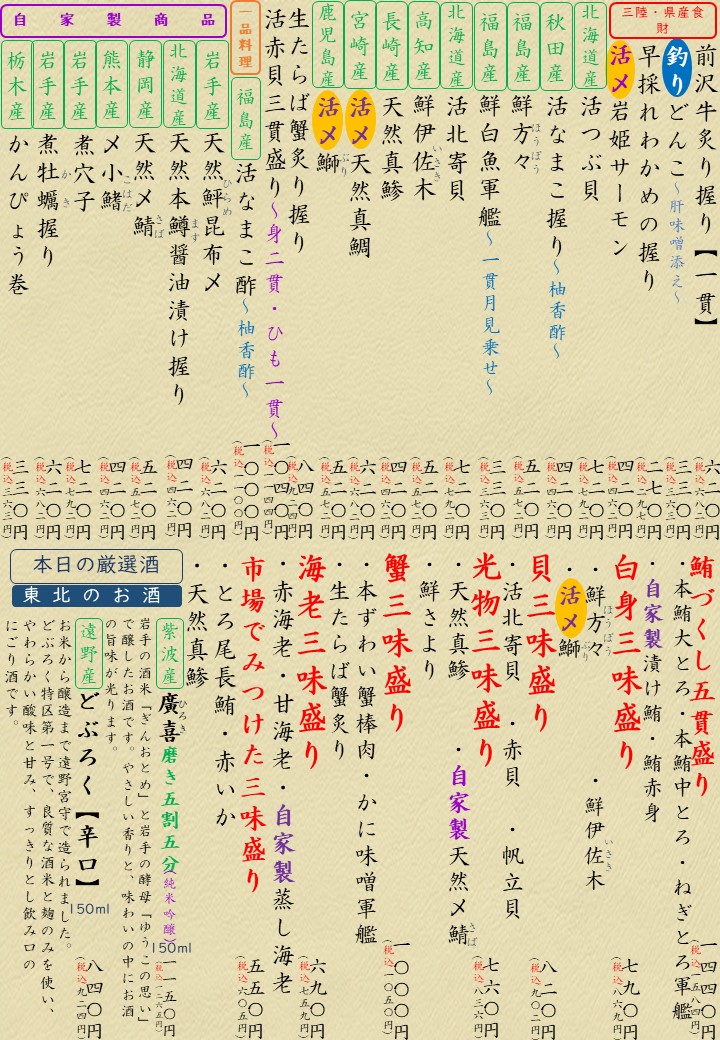 三陸・県産食財
前沢牛炙り握り【一貫】 六二〇円(税込六八二円)
釣り どんこ～肝味噌添え～ 三三〇円(税込三六三円)
早採れわかめの握り 二七〇円(税込二九七円)
活〆 岩姫サーモン 四二〇円(税込四六二円)
北海道産 活つぶ貝 七二〇円(税込七九二円)
秋田産 活なまこ握り～柚香酢～ 四二〇円(税込四六二円)
福島産 鮮方々 ほうぼう 五二〇円(税込五七二円)
福島産 鮮白魚軍艦～一貫月見乗せ～ 三三〇円(税込三六三円)
北海道産 活北寄貝 七二〇円(税込七九二円)
高知産 鮮伊佐木 いさき 五二〇円(税込五七二円)
長崎産 天然真鯵 四二〇円(税込四六二円)
宮崎産 活〆 天然真鯛 六二〇円(税込六八二円)
鹿児島産 活〆 鰤 ぶり 五二〇円(税込五七二円)
生たらば蟹炙り握り 八四〇円(税込九二四円)
活赤貝三貫盛り～身二貫・ひも一貫～ 一〇四〇円(税込一一四四円)
一品料理
福島産 活なまこ酢～柚香酢～ 一〇〇〇円(税込一一〇〇円)
自家製商品
岩手産 天然鮃昆布〆 ひらめ 六二〇円(税込六八二円)
北海道産 天然本鱒醤油漬け握り ます 四二〇円(税込四六二円)
静岡産 天然〆鯖 さば 五二〇円(税込五七二円)
熊本産 〆小鰭 こはだ 四二〇円(税込四六二円)
岩手産 煮穴子 七二〇円(税込七九二円)
岩手産 煮牡蠣握り かき 六二〇円(税込六八二円)
栃木産 かんぴょう巻 三三〇円(税込三六三円)
鮪づくし五貫盛り 一四四〇円(税込一五八四円)
・本鮪大とろ・本鮪中とろ・ねぎとろ軍艦
・自家製漬け鮪・鮪赤身
白身三味盛り 七九〇円(税込八六九円)
・鮮方々 ほうぼう ・鮮伊佐木 いさき
・活〆 鰤 ぶり
貝三味盛り 八二〇円(税込九〇二円)
・活北寄貝 ・赤貝 ・帆立貝
光物三味盛り 七六〇円(税込八三六円)
・天然真鯵 ・自家製天然〆鯖 さば
・鮮さより
蟹三味盛り 一〇〇〇円(税込一〇五〇円)
・本ずわい蟹棒肉・かに味噌軍艦
・生たらば蟹炙り
海老三味盛り 六九〇円(税込七五九円)
・赤海老・甘海老・自家製蒸し海老
市場でみつけた三味盛り 五五〇円(税込六〇五円)
・とろ尾長鮪・赤いか
・天然真鯵
本日の厳選酒
東北のお酒
紫波産 廣喜 ひろき 磨き五割五分(純米吟醸) 150ml 一一五〇円(税込一二六五円)
岩手の酒米「ぎんおとめ」と岩手の酵母「ゆうこの思い」
で醸したお酒です。やさしい香りと、味わいの中にお酒
の旨味が光ります。
遠野産 どぶろく【辛口】 150ml 八四〇円(税込九二四円)
お米から醸造まで遠野宮守で造られました。
どぶろく特区第一号で、良質な酒米と麹のみを使い、
やわらかい酸味と甘み、すっきりとし飲み口の
にごり酒です。